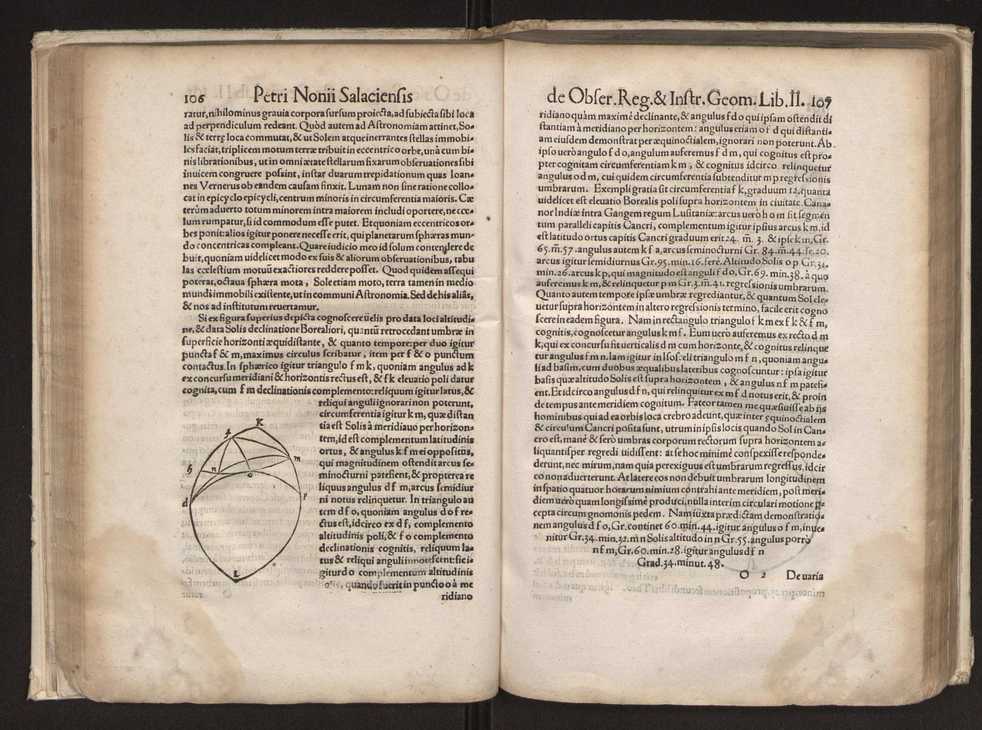 106 Petri Nonii Salaciensis
ratur, nihilominus grauia corpora sursum proiecta, ad subiecta sibi loca
ad perpendiculum redeant. Quòd autem ad Astronomiam attinet, So-
lis & terrę loca commutat, & ut Solem atque inerrantes stellas immobi-
les faciat, triplicem motum terræ tribuit in eccentrico orbe, unà cum bi-
nis librationibus, ut in omni ætate stellarum fixarum obseruationes sibi
inuicem congruere possint, instar duarum trepidationum quas Ioan-
nes Vernerus ob eandem causam finxit. Lunam non sine ratione collo-
cat in epicyclo epicycli, centrum minoris in circumferentia maioris. Cæ
terùm aduerto totum minorem intra maiorem includi oportere, ne cœ-
lum rumpatur, si id commodum esse putet. Et quoniam eccentricos or-
bes ponit: alios igitur ponere necesse erit, qui planetarum sphæras mun-
do concentricas compleant. Quare iudicio meo id solum contendere de
buit, quoniam uidelicet modo ex suis & aliorum obseruationibus, tabu
las cœlestium motuū exactiores reddere posset. Quod quidem assequi
poterat, octaua sphæra mota, Sole etiam moto, terra tamen in medio
mundi immobili existente, ut in communi Astronomia. Sed de his aliàs,
& nos ad institutum reuertamur.
Si ex figura superius depicta cognoscere uelis pro data loci altitudi
ne, & data Solis declinatione Borealiori, quantū retrocedant umbræ in
superficie horizonti æquidistante, & quanto tempore: per duo igitur
puncta f & m, maximus circulus scribatur, item per f & o punctum
contactus. In sphærico igitur triangulo f m k, quoniam angulus ad k
ex concursu meridiani & horizontis rectus est, & f k eleuatio poli datur
cognita, cum f m declinationis complemento: reliquum igitur latus, &
reliqui anguli ignorari non poterunt,
circumferentia igitur k m, quæ distan
tia est Solis à meridiano per horizon-
tem, id est complementum latitudinis
ortus, & angulus k f m ei oppositus,
qui magnitudinem ostendit arcus se-
minocturni patefient, & propterea re
liquus angulus d f m, arcus semidiur
ni notus relinquetur. In triangulo au
tem d f o, quoniam angulus d o f re-
ctus est, idcirco ex d f, complemento
altitudinis poli, & f o complemento
declinationis cognitis, reliquum la-
tus & reliqui anguli innotescent: sic i-
gitur d o complementum altitudinis
, quando fuerit in puncto o à me
ridiano
k
f
h
n
m
o
d
p
L
de Obser. Reg. & Instr. Geom. Lib. II. 107
ridiano quàm maximè declinante, & angulus f d o qui ipsam ostendit di
stantiam à meridiano per horizontem: angulus etiam o f d qui distanti-
am eiusdem demonstrat per æquinoctialem, ignorari non poterunt. Ab
ipso uerò angulo f d o, angulum auferemus f d m, qui cognitus est pro-
pter cognitam circumferentiam k m, & cognitus idcirco relinquetur
angulus o d m, cui quidem circumferentia subtenditur m p regressionis
umbrarum. Exempli gratia sit circumferentia f k, graduum 12, quanta
uidelicet est eleuatio Borealis poli supra horizontem in ciuitate Cana-
nor Indiæ intra Gangem regum Lusitaniæ: arcus uerò h o m sit segmen
tum paralleli capitis Cancri, complementum igitur ipsius arcus k m, id
est latitudo ortus capitis Cancri graduum erit 24. m̄. 3. & ipse k m, Gr.
65. m̄. 57. angulus autem k f a, arcus seminocturni Gr. 84. m̄. 44. fe. 20.
arcus igitur semidiurnus Gr. 95. min. 16. ferè. Altitudo Solis o p Gr. 31.
min. 26. arcus k p, qui magnitudo est anguli f d o, Gr. 69. min. 38. à quo
auferemus k m, & relinquetur p m Gr. 3. m̄. 41. regressionis umbrarum.
Quanto autem tempore ipsæ umbræ regrediantur, & quantum Sol ele-
uetur supra horizontem in altero regressionis termino, facile erit cogno
scere in eadem figura. Nam in rectangulo triangulo f k m ex f k & f m,
cognitis, cognoscetur angulus k m f. Eum uerò auferemus ex recto d m
k, qui ex concursu fit uerticalis d m cum horizonte, & cognitus relinque
tur angulus f m n. Iam igitur in Isosceli triangulo m f n, quoniam angu-
li ad basim, cum duobus æqualibus lateribus cognoscuntur: ipsa igitur
basis quæ altitudo Solis est supra horizontem, & angulus n f m patefi-
ent. Et idcirco angulus d f n, qui relinquitur ex m f d notus erit, & proin
de tempus ante meridiem cognitum. Fateor tamen me quæsiuisse ab ijs
hominibus qui ad ea orbis loca crebro adeunt, quæ inter æquinoctialem
& circulum Cancri posita sunt, utrum in ipsis locis quando Sol in Can-
cro est, manè & serò umbras corporum rectorum supra horizontem a-
liquantisper regredi uidissent: at se hoc minimè conspexisse responde-
derunt, nec mirum, nam quia perexiguus est umbrarum regressus, idcir
co non aduerterunt. At latere eos non debuit umbrarum longitudinem
in spatio quatuor horarum nimium contrahi ante meridiem, post meri-
diem uerò quam longissimè produci, nulla interim circulari motione p-
cepta circum gnomonis pedem. Nam iuxta prædictam demonstratio-
nem angulus d f o, Gr. continet 60. min. 44. igitur angulus o f m, inue-
nitur Gr. 34. min. 32. m̄ n Solis altitudo in n Gr. 55. angulus porrò
n f m, Gr. 60. min. 28. igitur angulus d f n
Grad. 34. minut. 48.
O 2 De uaria